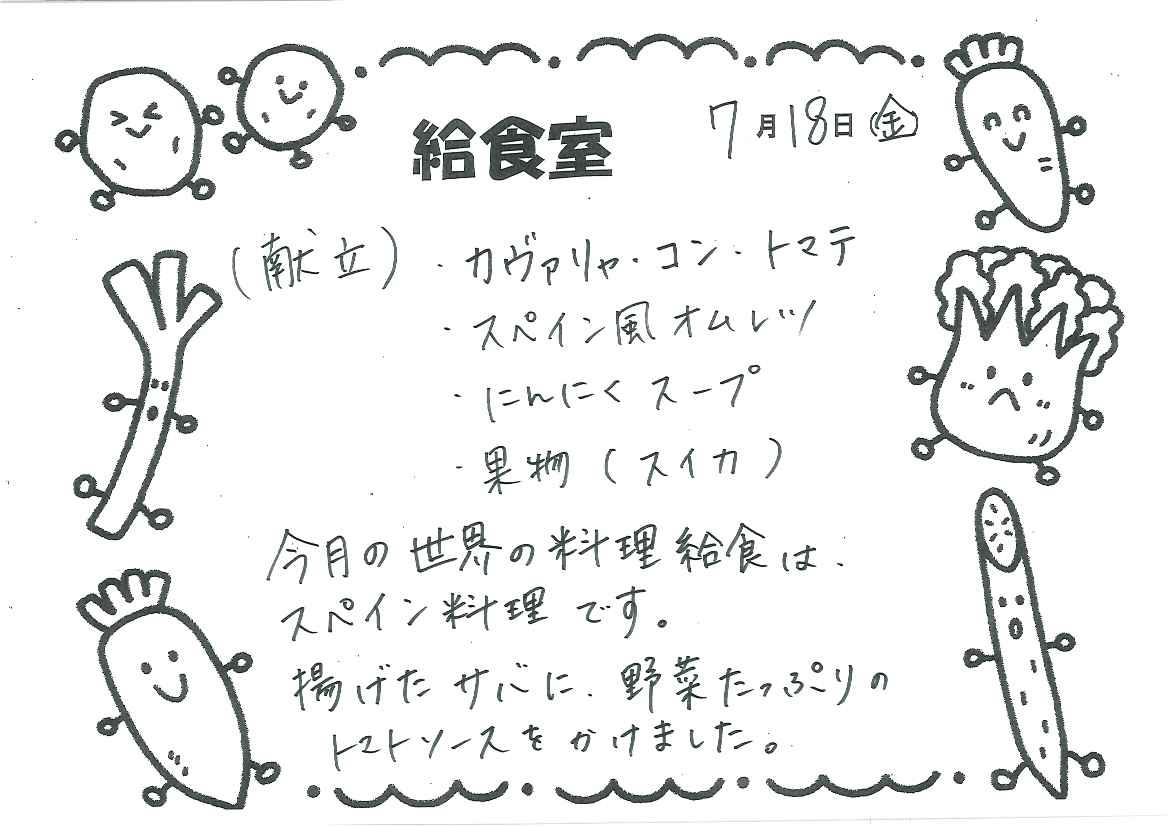 給食室
7月18日(金)
(献立)・カヴァリャ・コン・トマテ
・スペイン風オムレツ
・にんにくスープ
・果物(スイカ)
今月の世界の料理給食は、
スペイン料理です。
揚げたサバに、野菜たっぷりの
トマトソースをかけました。